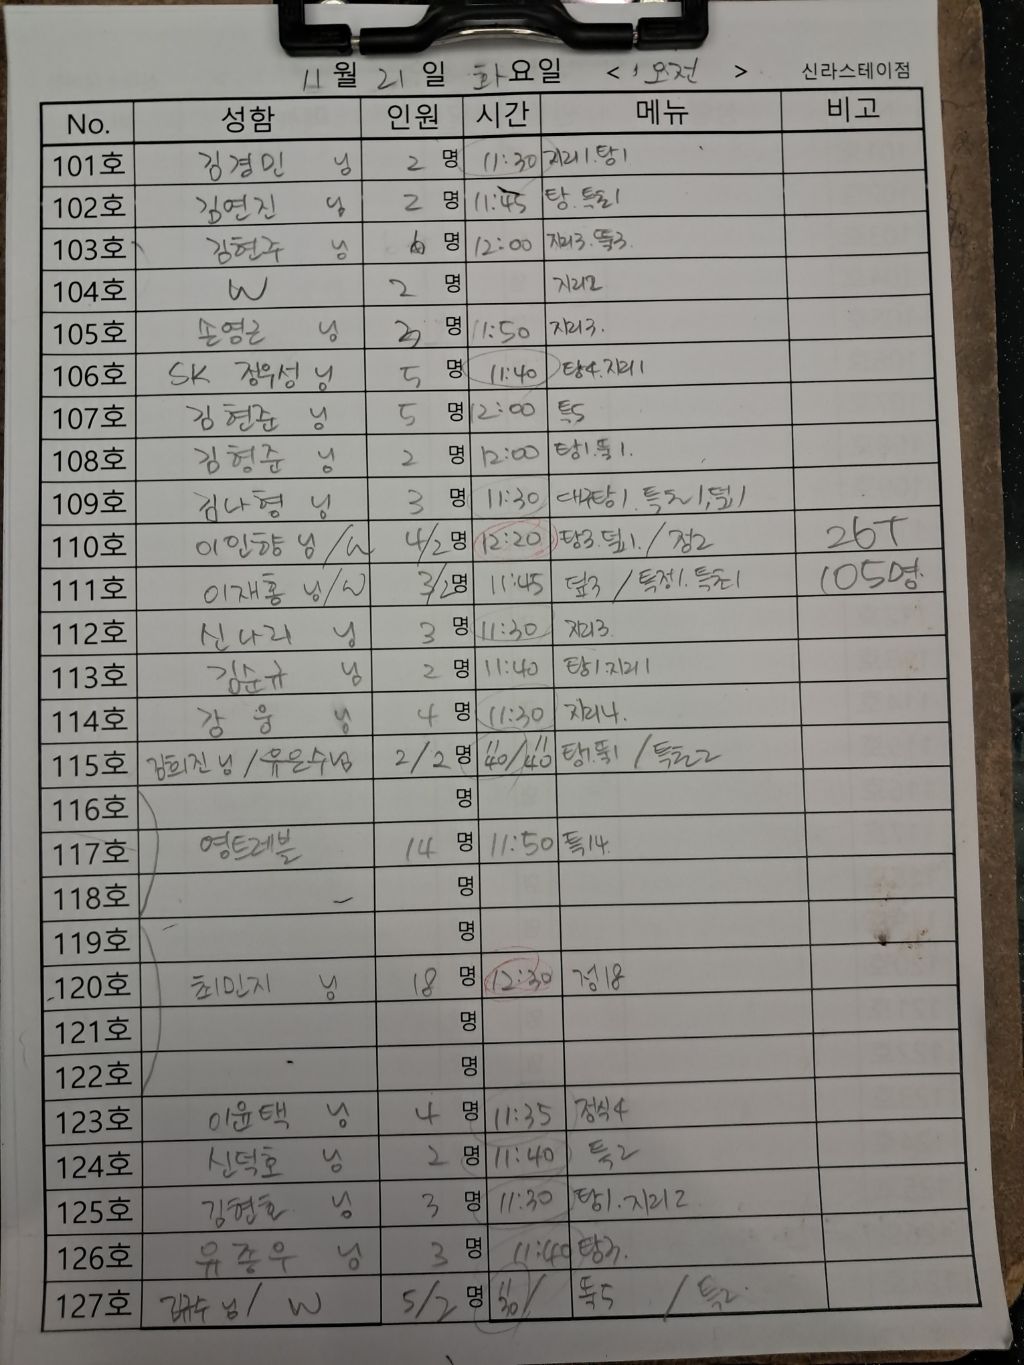 11월 21일 화요일 < 오전 > 신라스테이점
No. 성함 인원 시간 메뉴 비고
101호 김경민 님 2 명 11:30 지리1.탕1
102호 김연진 님 2 명 11:45 탕.특1
103호 김현주 님 6 명 12:00 지리3.뚝3.
104호 W 2 명 지리2
105호 손영근 님 3 명 11:50 지리3.
106호 SK 정우성 님 5 명 11:40 탕4.지리1
107호 김현준 님 5 명 12:00 특5
108호 김형준 님 2 명 12:00 탕1.뚝1.
109호 김나형 님 3 명 11:30 대구탕1. 덮1
110호 이인향 님/W 4/2명 12:20 탕3.덮1. / 정2 26T
111호 이재홍 님/W 3/2명 11:45 덮3 / 특정1. 105명.
112호 신나리 님 3 명 11:30 지리3.
113호 김순규 님 2 명 11:40 탕1.지리1
114호 강웅 님 4 명 11:30 지리4.
115호 김희진 님/유은수님 2/2 명 11 40/11 40 탕1.뚝1 /
116호 명
117호 영트레블 14 명 11:50 특14.
118호 명
119호 명
120호 최민지 님 18 명 12:30 정18
121호 명
122호 명
123호 이윤택 님 4 명 11:35 정식4
124호 신덕호 님 2 명 11:40 특2
125호 김현호 님 3 명 11:30 탕1.지리2
126호 유종우 님 3 명 11:40 탕3.
127호 님/ W 5/2 명 11 30/ 뚝5 / 특2